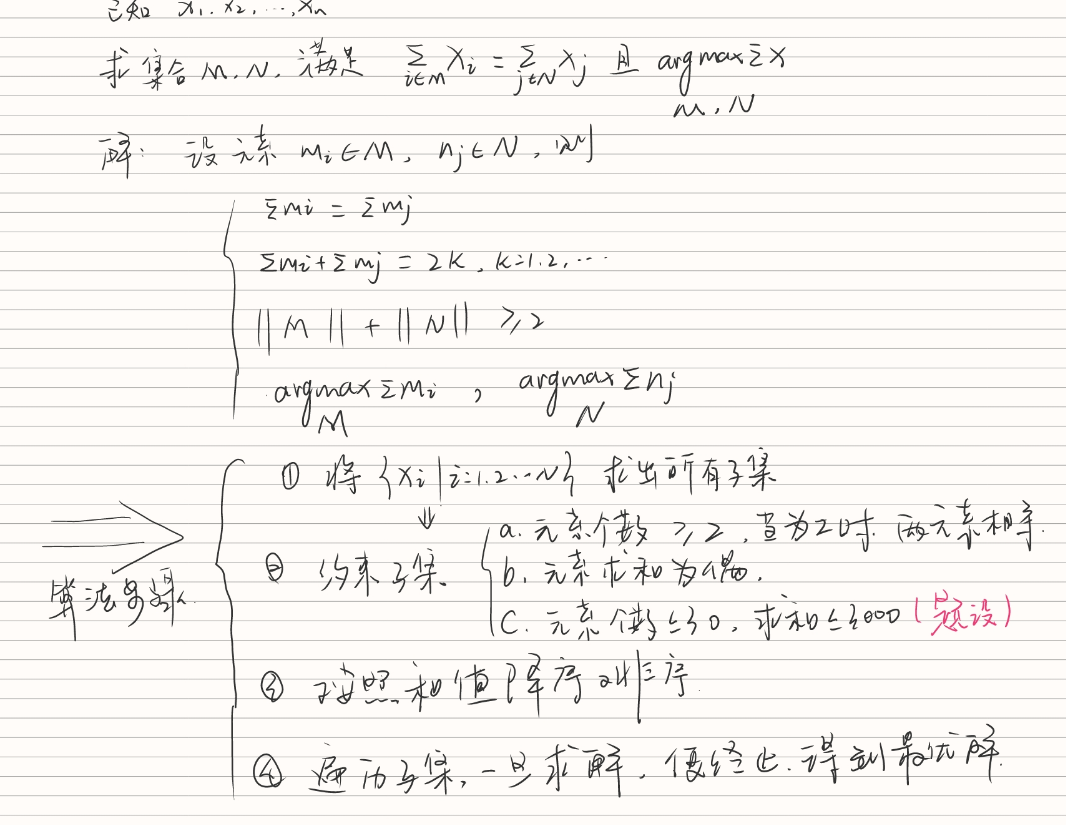 已知 x₁, x₂, ..., xₙ
求集合 M, N, 满足 ∑_{i∈M} xᵢ = ∑_{j∈N} xⱼ 且 argmax_{M, N} ∑x
解: 设元素 mᵢ∈M, nⱼ∈N, 则
∑mᵢ = ∑mⱼ
∑mᵢ+∑mⱼ = 2k, k=1,2,...
||M|| + ||N|| ≥ 2
argmax_M ∑mᵢ , argmax_N ∑nⱼ
① 将 {xᵢ|i=1,2...N} 求出所有子集
↓
② 约束子集
a. 元素个数 ≥2, 当为2时 两元素相等.
b. 元素求和为偶.
c. 元素个数≤30, 求和≤3000 (题设)
算法步骤
③ 按照和值降序排序.
④ 遍历子集, 一旦求解, 便终止. 得到最优解.